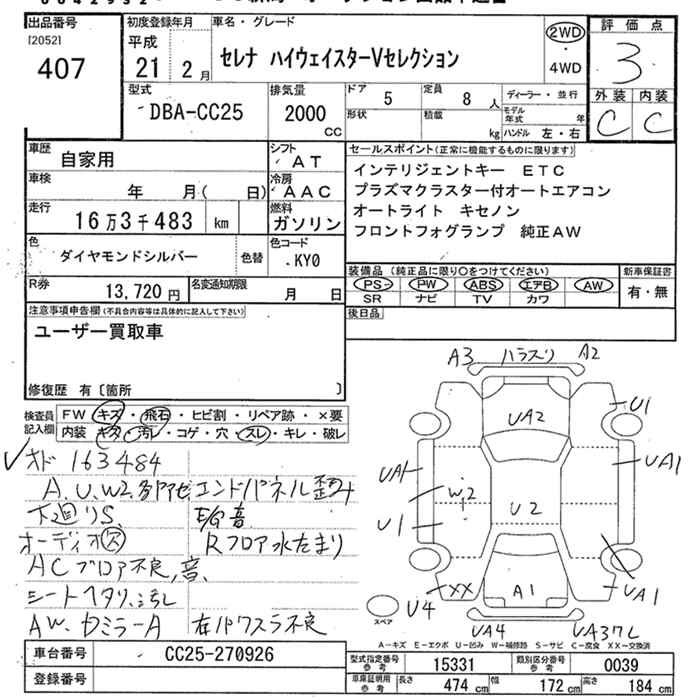 出品番号
[2052]
407
初度登録年月
平成
21 2月
車名・グレード
セレナ ハイウェイスターVセレクション
2WD
・
4WD
評価点
3
外装 内装
C C
型式
DBA-CC25
排気量
2000
cc
ドア
5
定員
8 人
形状
積載
kg
ディーラー・並行
モデル年式 年
ハンドル 左・右
車歴
自家用
シフト
AT
車検
年 月( 日)
冷房
AAC
走行
16万3千483 km
燃料
ガソリン
色
ダイヤモンドシルバー
色替
色コード
KY0
R券
13,720円
名変通知期限
月 日
セールスポイント(正常に機能するものに限ります)
インテリジェントキー ETC
プラズマクラスター付オートエアコン
オートライト キセノン
フロントフォグランプ 純正AW
装備品 (純正品に限り○をつけてください)
PS PW ABS エアB AW
SR ナビ TV カワ
新車保証書
有・無
後日品
注意事項申告欄(不具合内容等は具体的に記入して下さい)
ユーザー買取車
修復歴 有〔箇所 〕
検査員記入欄
FW キズ・飛石・ヒビ割・リペア跡・×要
内装 キズ・汚レ・コゲ・穴・スレ・キレ・破レ
オド 163484
A.U.W2. エンドパネル歪み
下廻りS E/G音
オーディオ欠 Rフロア水たまり
ACブロア不良,音
シートヘタリ、汚レ
AW.ドミラーA 右パワスラ不良
A3 A2
UA2
U1
UA1
UA1
W2
U2
U1
XX
A1
UA1
U4
UA4
UA37L
スペア
A-キズ E-エクボ U-凹み W-補修跡 S-サビ C-腐食 XX-交換済
車台番号
CC25-270926
登録番号
型式指定番号
参考
15331
類別区分番号
参考
0039
車庫証明用
参考
長さ
474 cm
幅
172 cm
高さ
184 cm